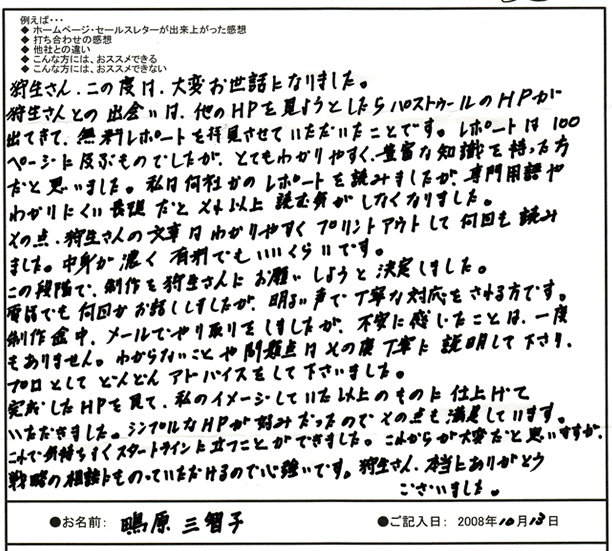 例えば・・・
◆ ホームページ・セールスレターが出来上がった感想
◆ 打ち合わせの感想
◆ 他社との違い
◆ こんな方には、おススメできる
◆ こんな方には、おススメできない
狩生さん、この度は、大変お世話になりました。
狩生さんとの出会いは、他のHPを見ようとしたらパストゥールのHPが
出てきて、無料レポートを拝見させていただいたことです。レポートは100
ページに及ぶものでしたが、とてもわかりやすく、豊富な知識を持った方
だと思いました。私は何社かのレポートを読みましたが、専門用語や
わかりにくい表現だとそれ以上読む気がしなくなりました。
その点、狩生さんの文章はわかりやすくプリントアウトして何回も読み
ました。中身が濃く有料でもいいくらいです。
この段階で、制作を狩生さんにお願いしようと決定しました。
電話でも何回かお話ししましたが、明るい声で丁寧な対応をされる方です。
制作途中、メールでやり取りをしましたが、不安に感じたことは、一度
もありません。わからないことや問題点はその度丁寧に説明して下さり、
プロとしてどんどんアドバイスをして下さいました。
完成したHPを見て、私のイメージしていた以上のものに仕上げて
いただきました。シンプルなHPが好みだったのでその点も満足しています。
これで気持ちよくスタートラインに立つことができました。これからが大変だと思いますが、
戦略の相談にものっていただけるので心強いです。狩生さん、本当にありがとう
ございました。
●お名前: 鴫原 三智子 ●ご記入日: 2008年10月13日